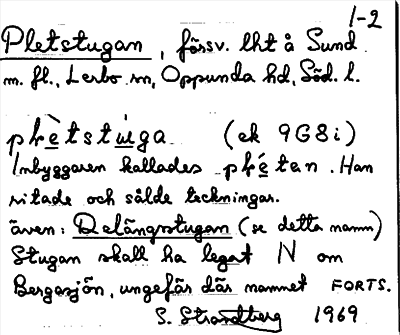 1-2
Pletstugan, försv. lht å Sund
m. fl., Lerbo sn, Oppunda hd, Söd. l.
plètstùga (ek 9G8i)
Inbyggaren kallades pléten. Han
ritade och sålde teckningar.
även: Delängsstugan (se detta namn)
Stugan skall ha legat N om
Bergasjön, ungefär där namnet FORTS.
S. Strandberg 1969